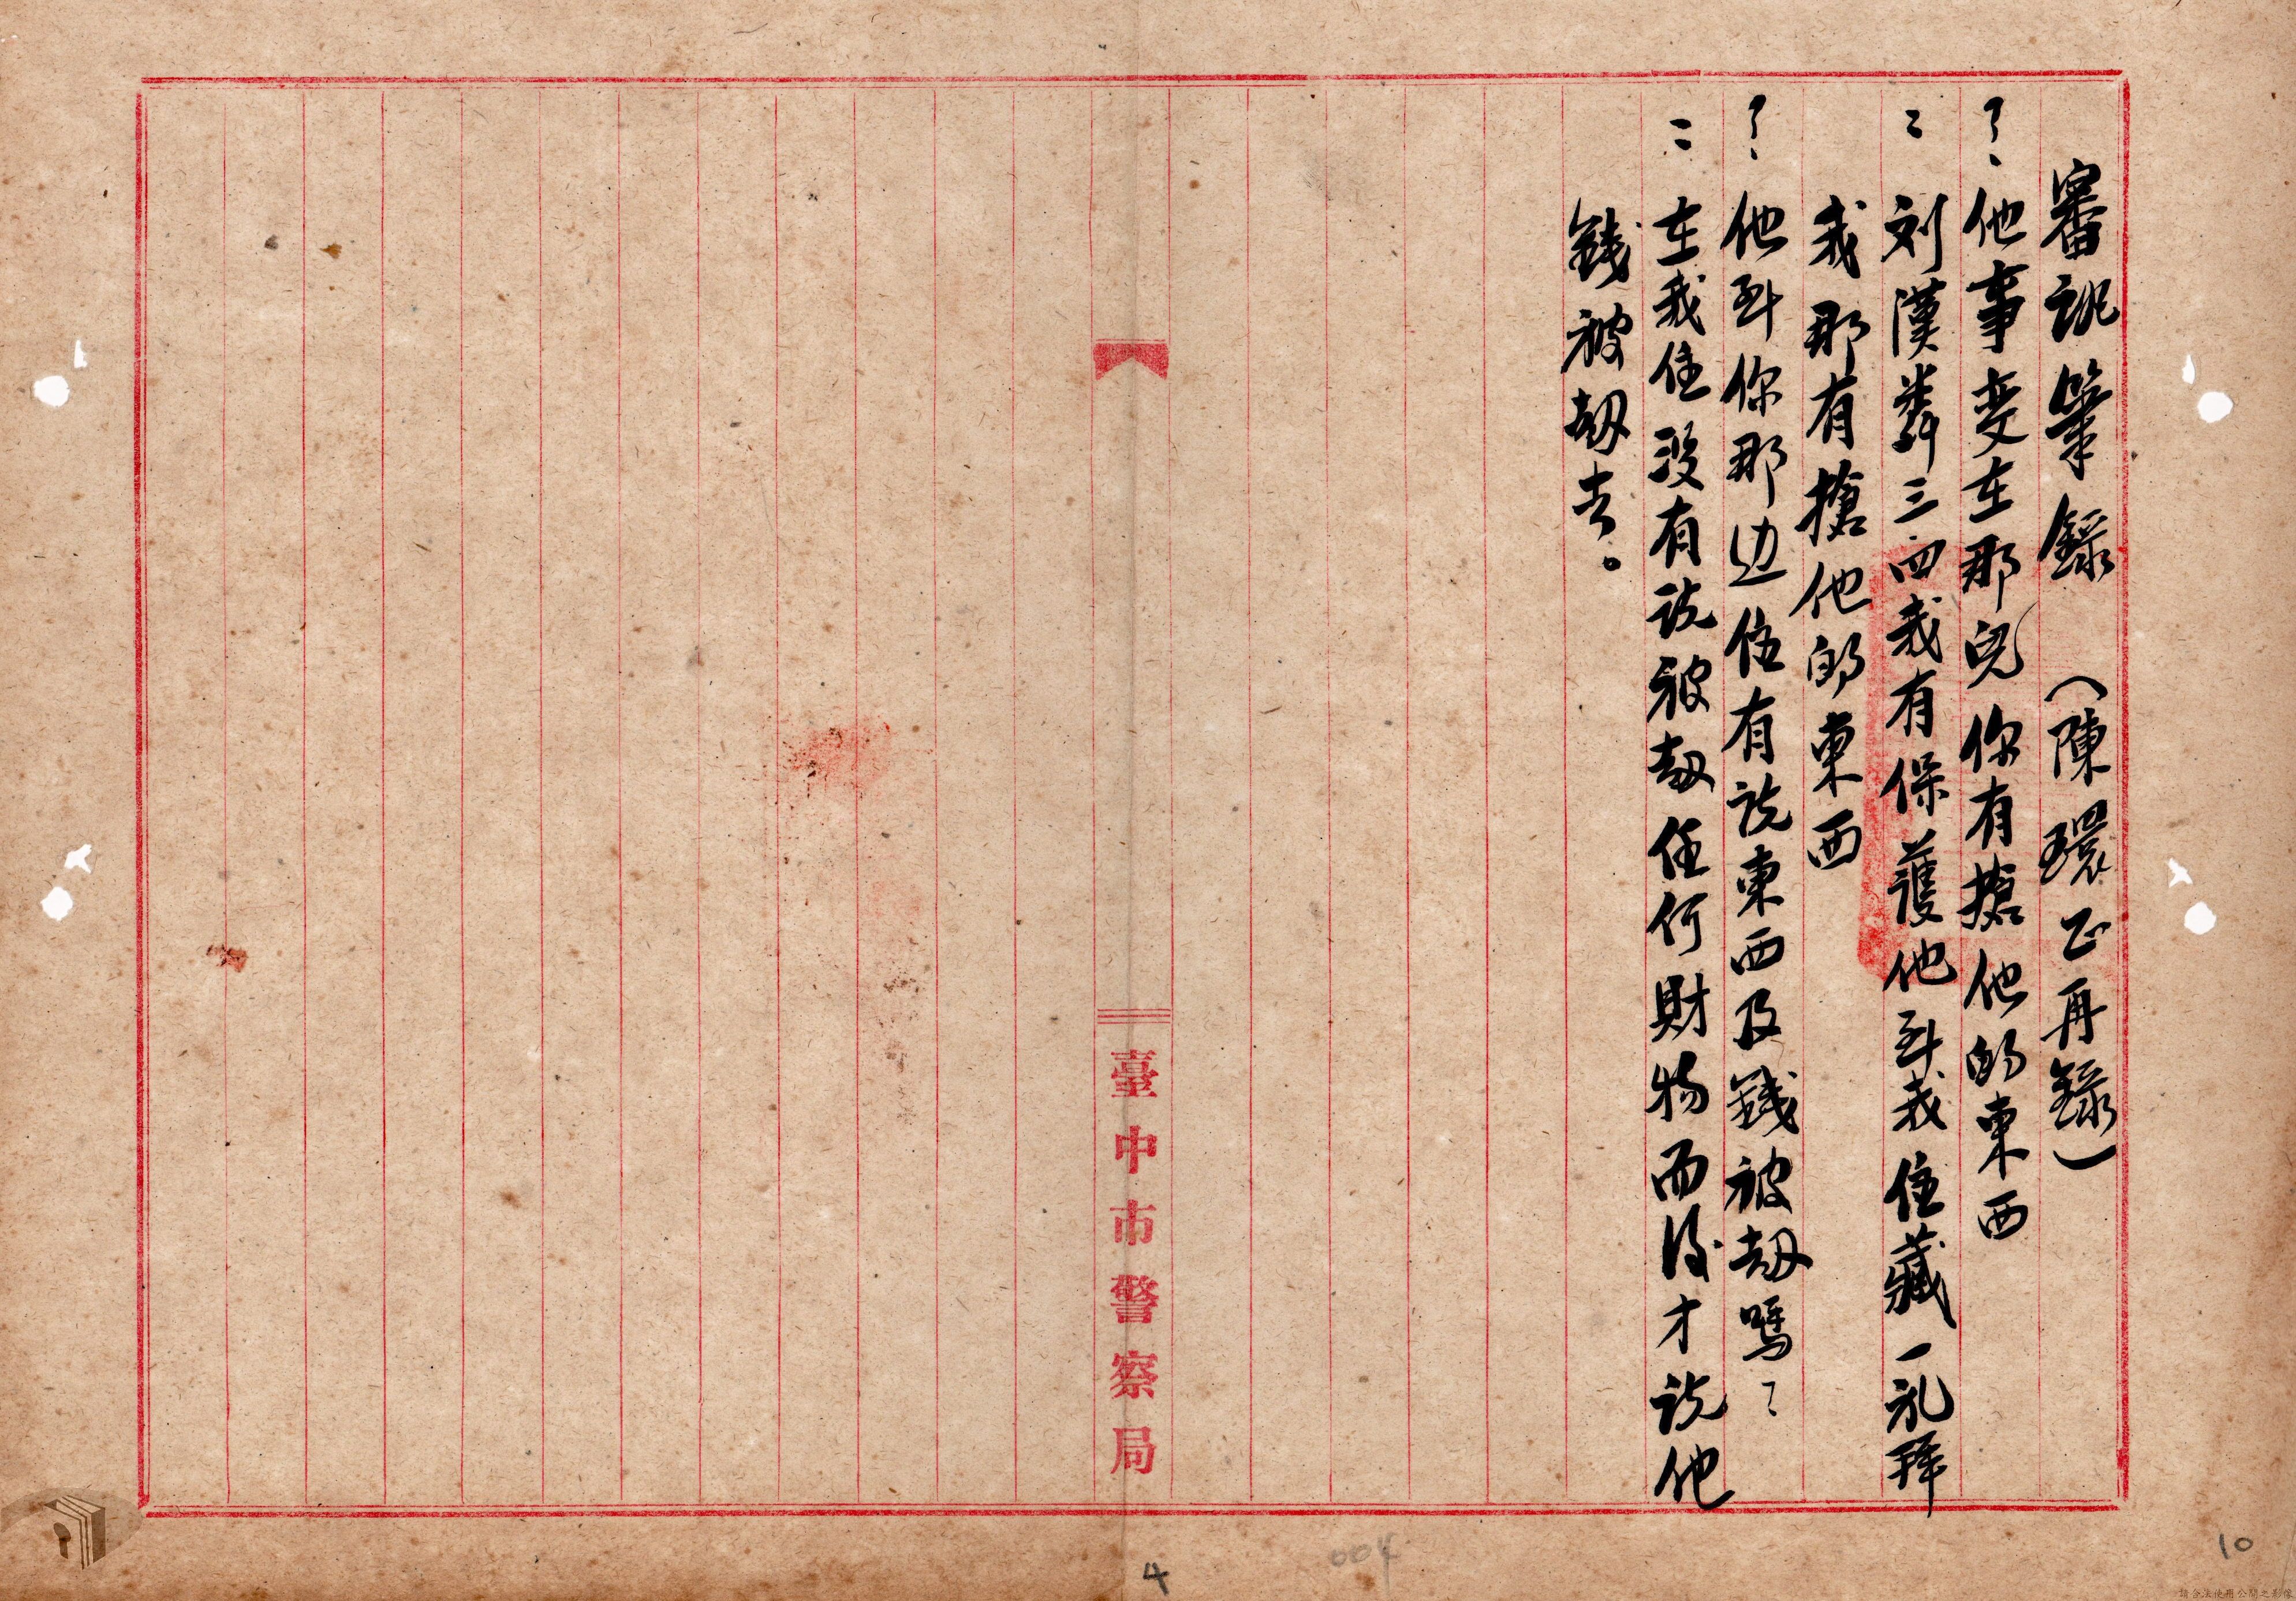 審訊筆錄　(陳環正再錄)
？、他事变在那兒你有搶他的東西
：刘漢舞三四我有保護他到我住藏一礼拜
我那有搶他的東西
？、他到你那边住有説東西及錢被刼嗎？
：在我住没有説被刼任何財物而後才説他
錢被刼去。
臺中市警察局
4
004
10
請合法使用公開之影像